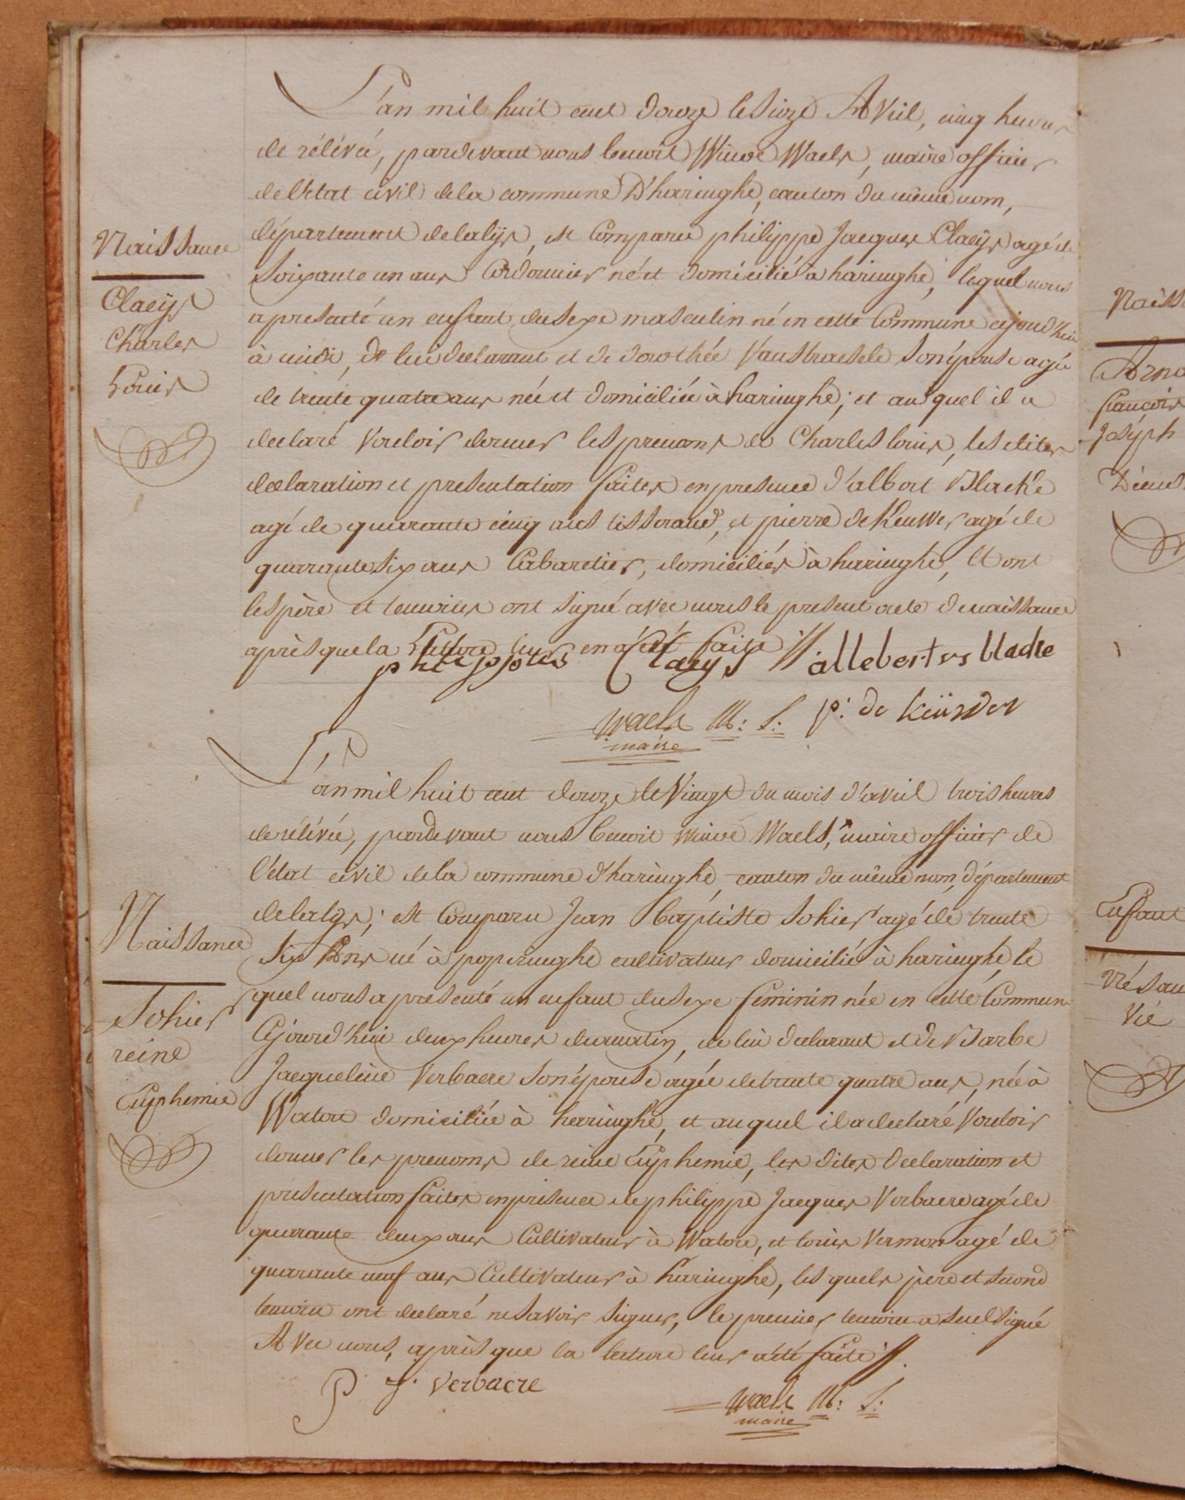 L'an mil huit cent douze le sieze Avril, cinq heures
de rélévée, pardevant nous benoit Winoc Waels, maire officier
de l'etat civil de la commune D'haringhe, canton du même nom,
département de la lys, est Comparu philippe Jacques Claeijs agé de
Soixante un ans Cordonnier né et domicilié à haringhe, lequel nous
a presenté un enfant du sexe masculin né en cette Commune cejourd'hui
à midi, de lui déclarant et de dorothée Vanstraesele son épouse agée
de trente quatre ans née et domiciliée à haringhe; et auquel il a
declaré Vouloir donner les prenoms de Charles louis, les dites
declaration et presentation faites en presence d'albert Blacké
agé de quarante cinq ans tisserand, et pierre de Keuwer agé de
quarante six ans Cabaretier, domiciliés à haringhe, Et ont
les père et temoins ont signé avec nous le present acte de naissance
après que la Lecture leur en a été faite //.
philippus Claeijs allebertus blacke
Waels M: S: p: de keüwer
maire
Naissance
Claeijs
Charles
Louis
L'an mil huit cent douze le Vingt du mois d'avril trois heures
de rélévée, pardevant nous benoit winoc Waels, maire officier de
l'état civil de la commune d'haringhe, canton du même nom, département
de la lys; est Comparu Jean baptiste Sohier agé de trente
Six Ans né à poperinghe cultivateur domicilié à haringhe, le
quel nous a presenté un enfant du sexe feminin née en cette Commune
Cejourd'hui deux heures du matin, de lui declarant et de Barbe
Jacqueline Verbaere son épouse agée de trente quatre ans, née à
Watou domiciliée à haringhe, et auquel il a declaré Vouloir
donner les prenoms de reine Euphemie, les dites declaration et
presentation faites en presence de philippe Jacques Verbaere agé de
quarante deux ans Cultivateur à Watou, et louis Vermon agé de
quarante neuf ans Cultivateur à haringhe, les quels père et second
temoin ont declaré ne savoir signer, le premier temoin a seul signé
Avec nous, après que la lecture leur a été faite //.
P. J. Verbaere
Waels M: S:
maire
Naissance
Sohier
reine
Euphemie
Naiss
Arno
francois
Joséph
Enfant
Vie